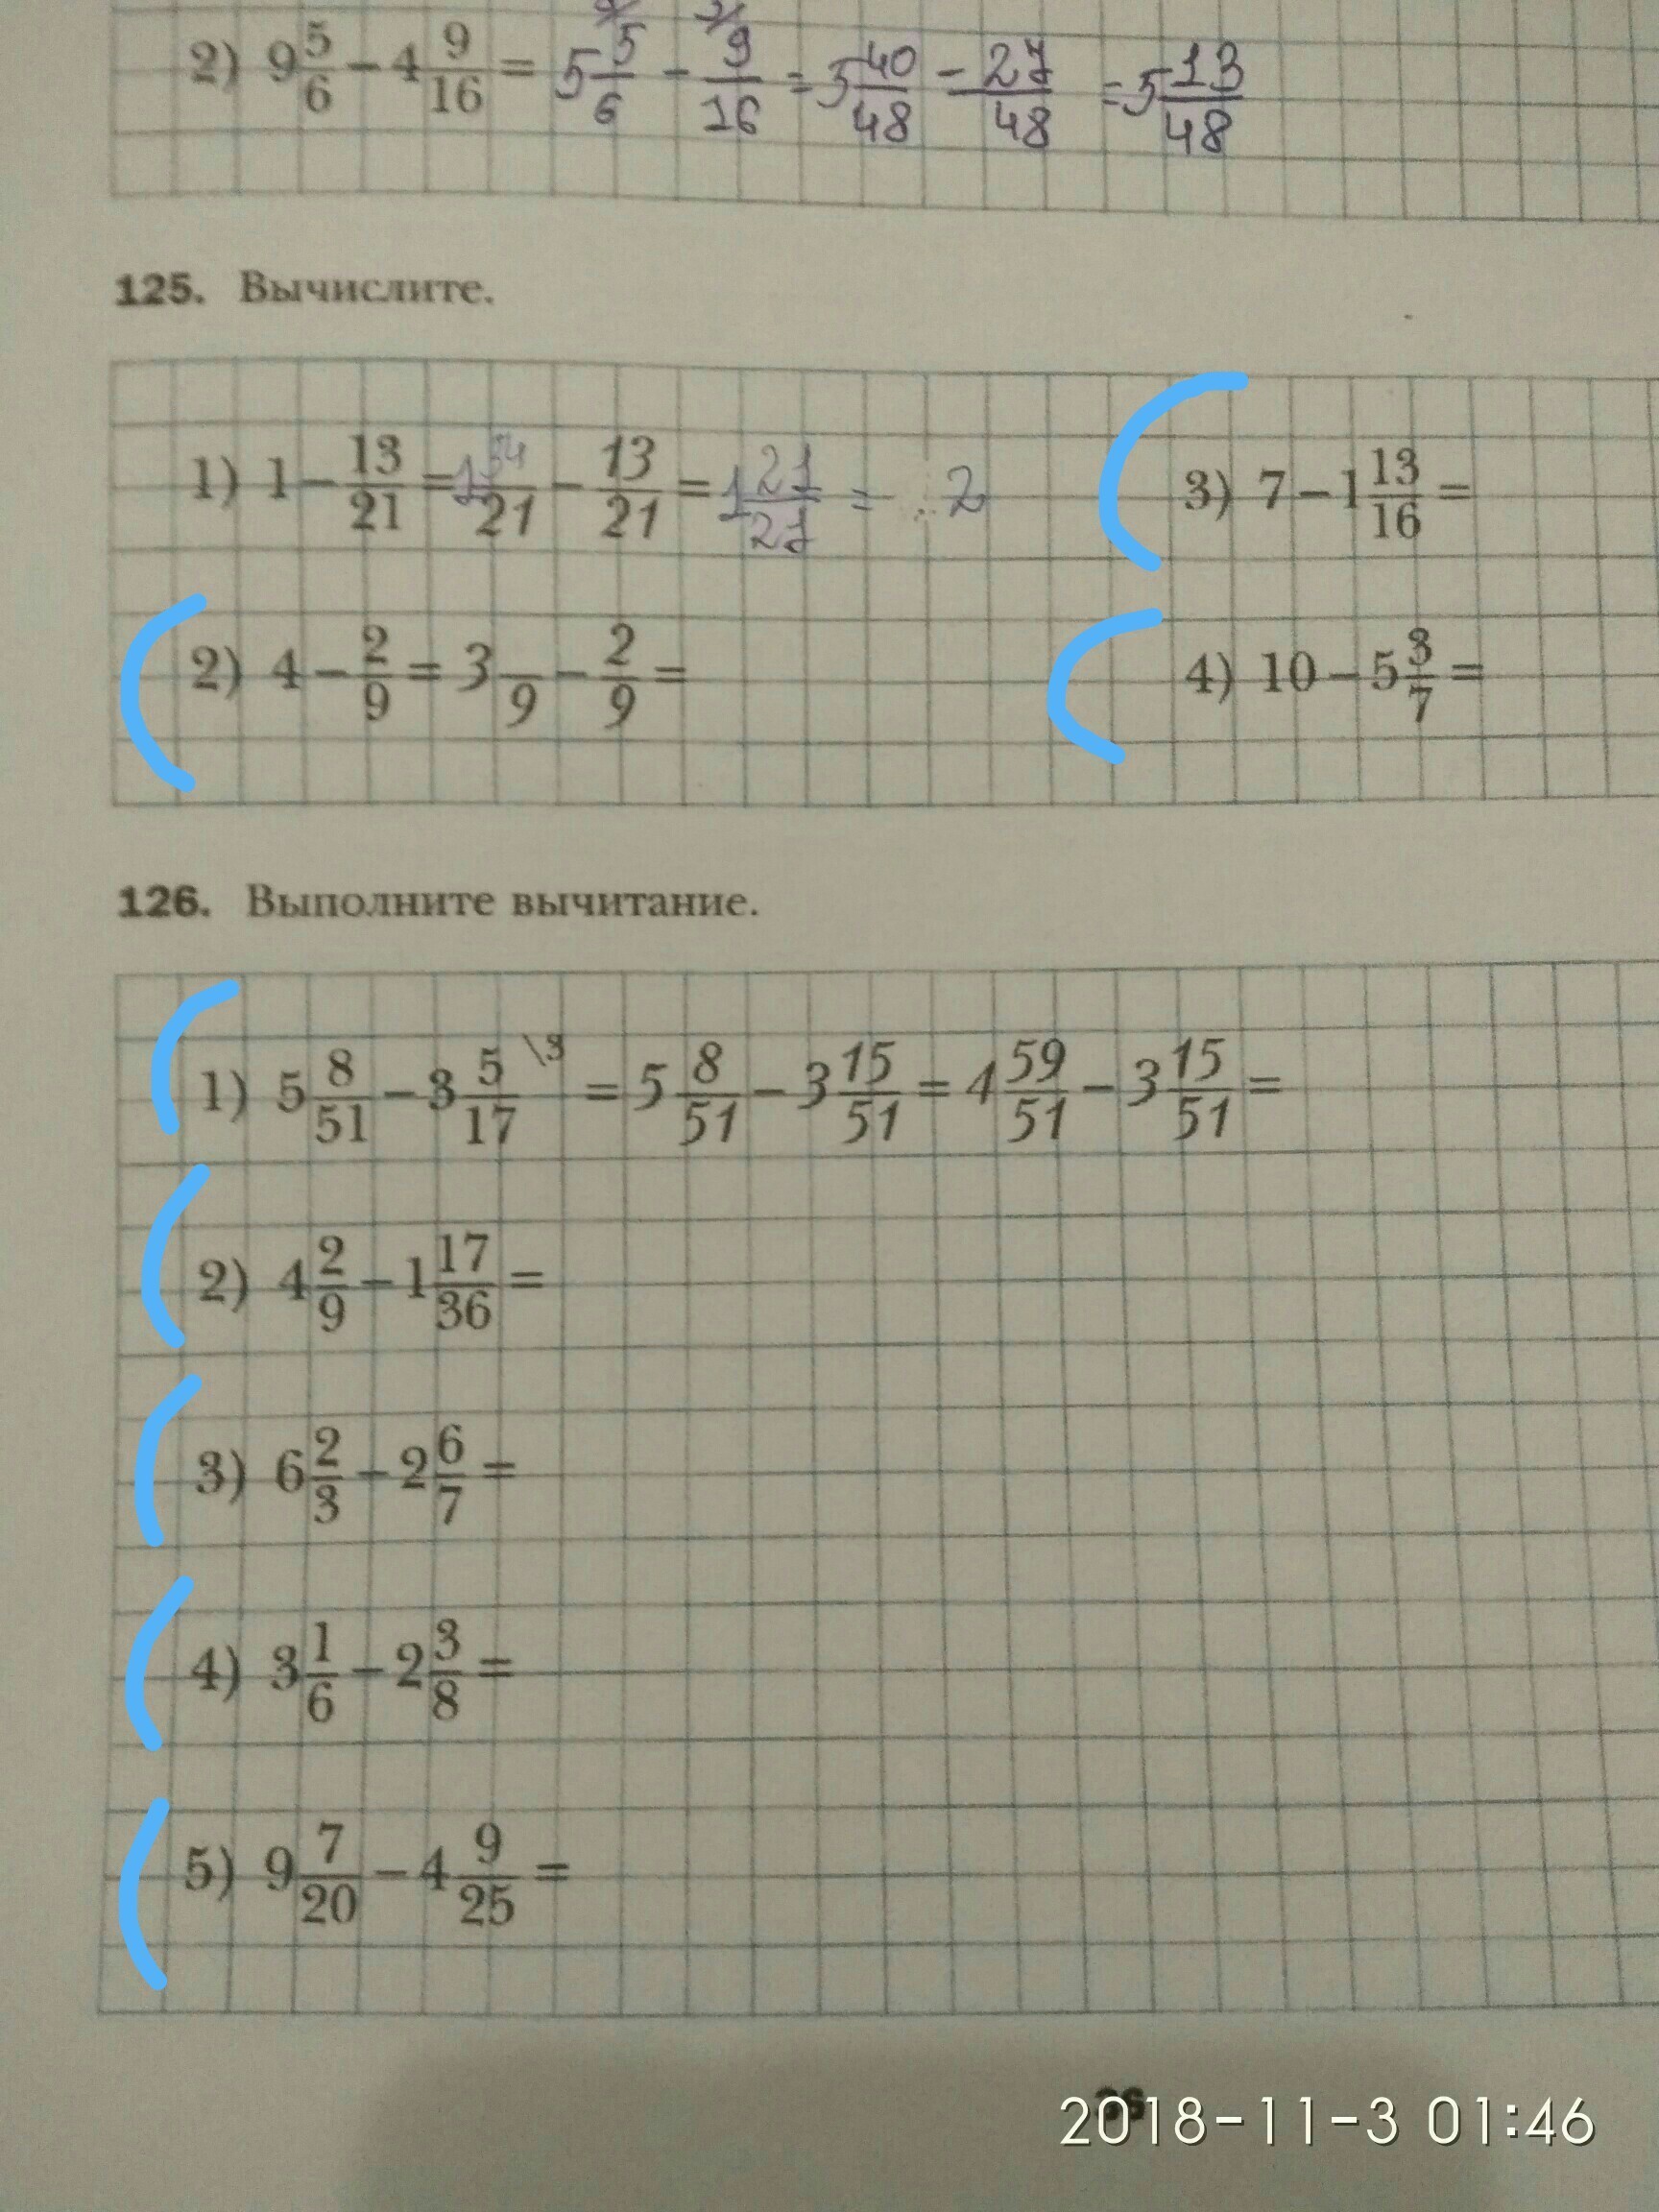 2) 9 5/6 − 4 9/16 = 5 5/6 − 9/16 = 5 40/48 − 27/48 = 5 13/48
125. Вычислите.
1) 1 − 13/21 = 1 34/21 − 13/21 = 1 21/21 = 2
3) 7 − 1 13/16 =
2) 4 − 2/9 = 3 /9 − 2/9 =
4) 10 − 5 3/7 =
126. Выполните вычитание.
1) 5 8/51 − 3 5/17 \3 = 5 8/51 − 3 15/51 = 4 59/51 − 3 15/51 =
2) 4 2/9 − 1 17/36 =
3) 6 2/3 − 2 6/7 =
4) 3 1/6 − 2 3/8 =
5) 9 7/20 − 4 9/25 =
36
2018-11-3 01:46